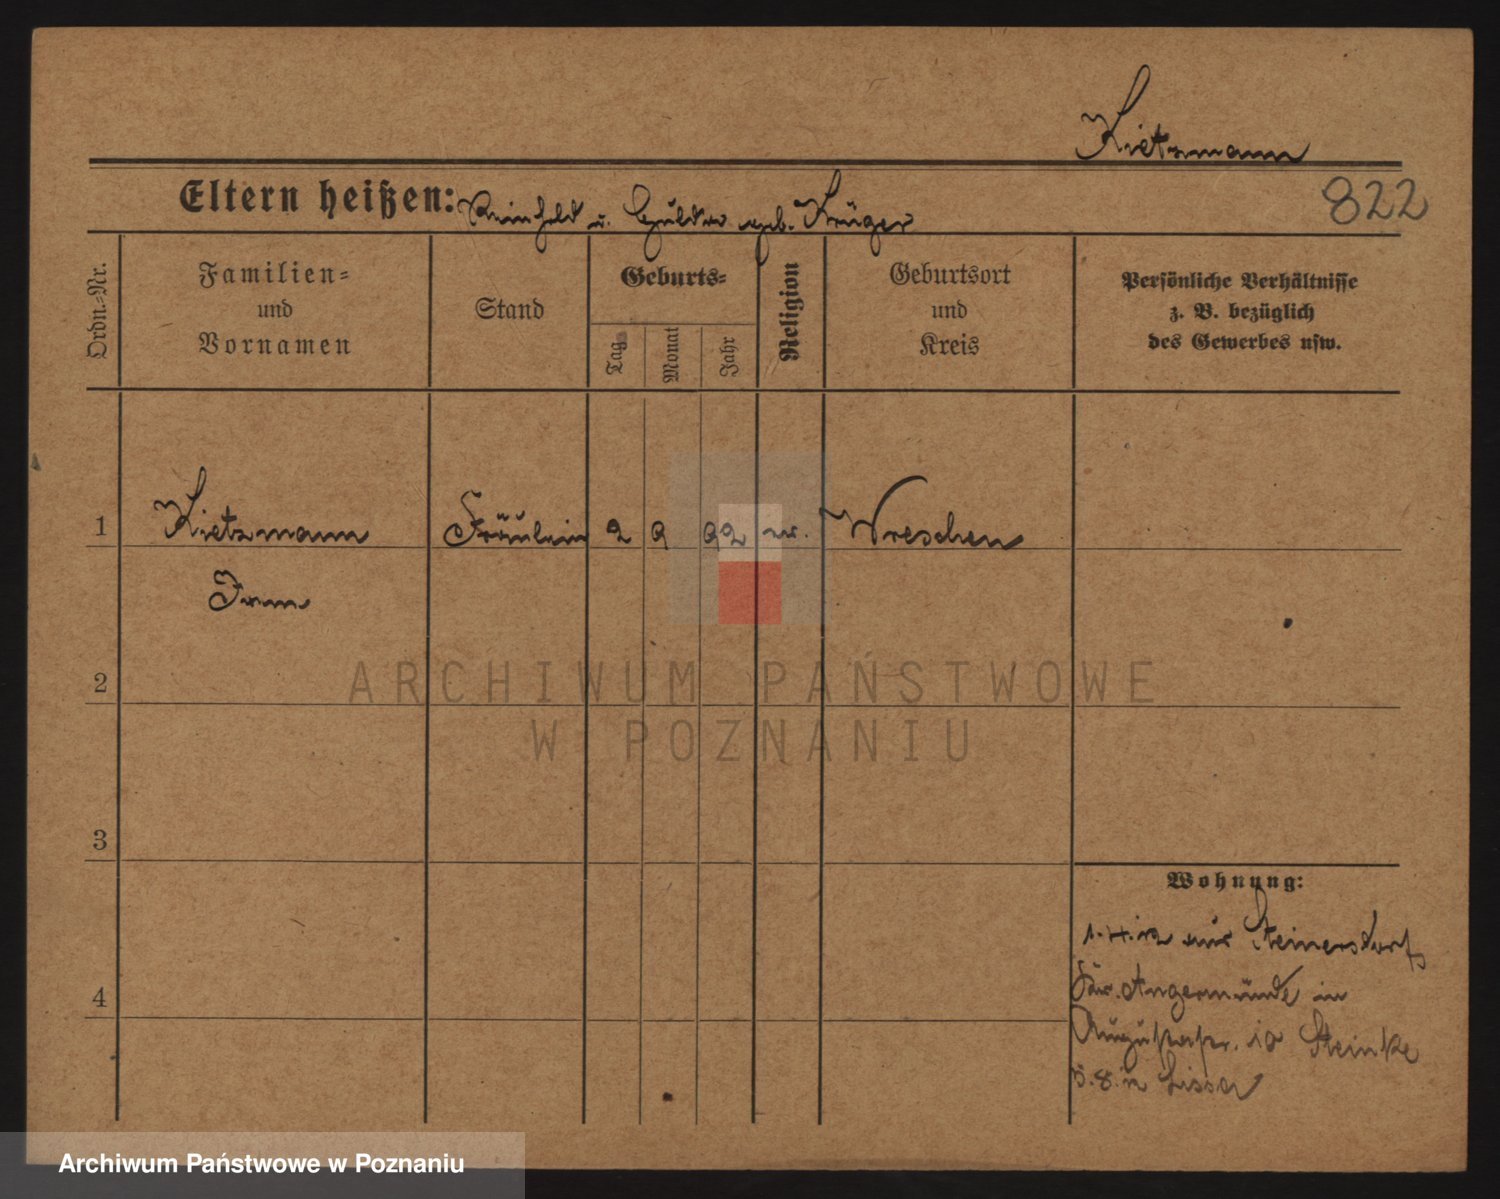 Kietzmann
Eltern heißen: Reinhold u. Hulda geb. Krüger
822
Ordn.-Nr.
Familien-
und
Vornamen
Stand
Geburts-
Tag
Monat
Jahr
Religion
Geburtsort
und
Kreis
Persönliche Verhältnisse
z. B. bezüglich
des Gewerbes usw.
1 Kietzmann Fräulein 2 9 92 ev. Wreschen
Irm
2
3
4
Wohnung:
aus Steinersdorf
Angermünde in
Augustastr. 10 Steinke
in Lissa
ARCHIWUM PAŃSTWOWE
W POZNANIU
Archiwum Państwowe w Poznaniu